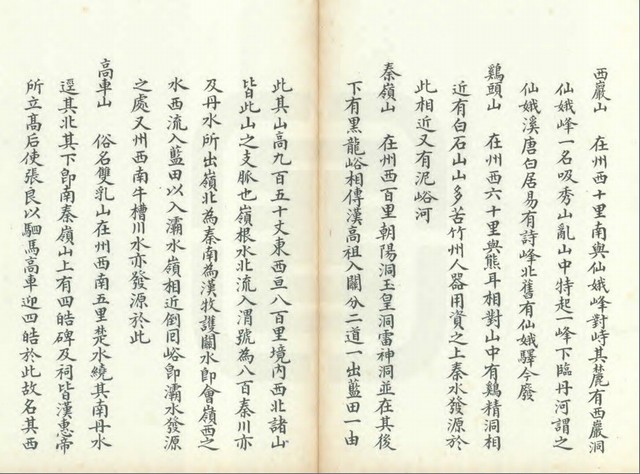 西巖山　在州西十里南與仙娥峰對峙其麓有西巖洞
仙娥峰一名吸秀山亂山中特起一峰下臨丹河謂之
仙娥溪唐白居易有詩峰北舊有仙娥驛今廢
鷄頭山　在州西六十里與熊耳相對山中有鷄精洞相
近有白石山山多苦竹州人器用資之上秦水發源於
此相近又有泥峪河
秦嶺山　在州西百里朝陽洞玉皇洞雷神洞並在其後
下有黑龍峪相傳漢高祖入關分二道一出藍田一由
此其山高九百五十丈東西亘八百里境內西北諸山
皆此山之支脈也嶺根水北流入渭號為八百秦川亦
及丹水所出嶺北為秦南為漢牧護關水即會嶺西之
水西流入藍田以入灞水嶺相近倒回峪即灞水發源
之處又州西南牛槽川水亦發源於此
高車山　俗名雙乳山在州西南五里楚水繞其南丹水
逕其北其下即南秦嶺山上有四皓碑及祠皆漢惠帝
所立高后使張良以駟馬高車迎四皓於此故名其西